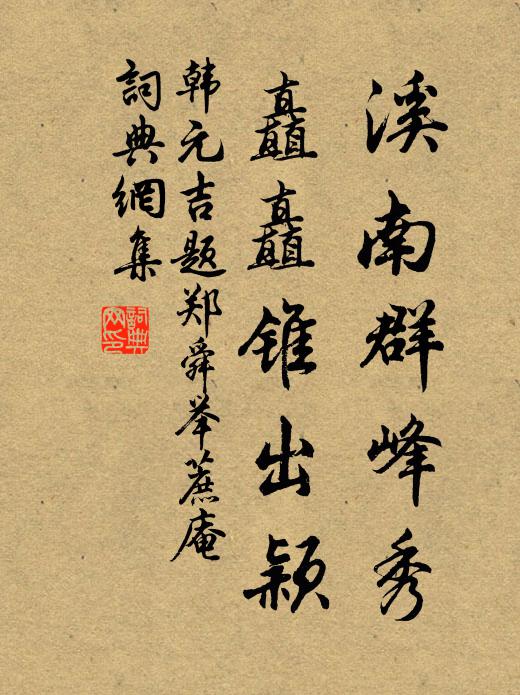 溪南群峰秀
矗矗锥出颖
韩元吉题郑舜举蔗庵
詞典網集
詞典网印